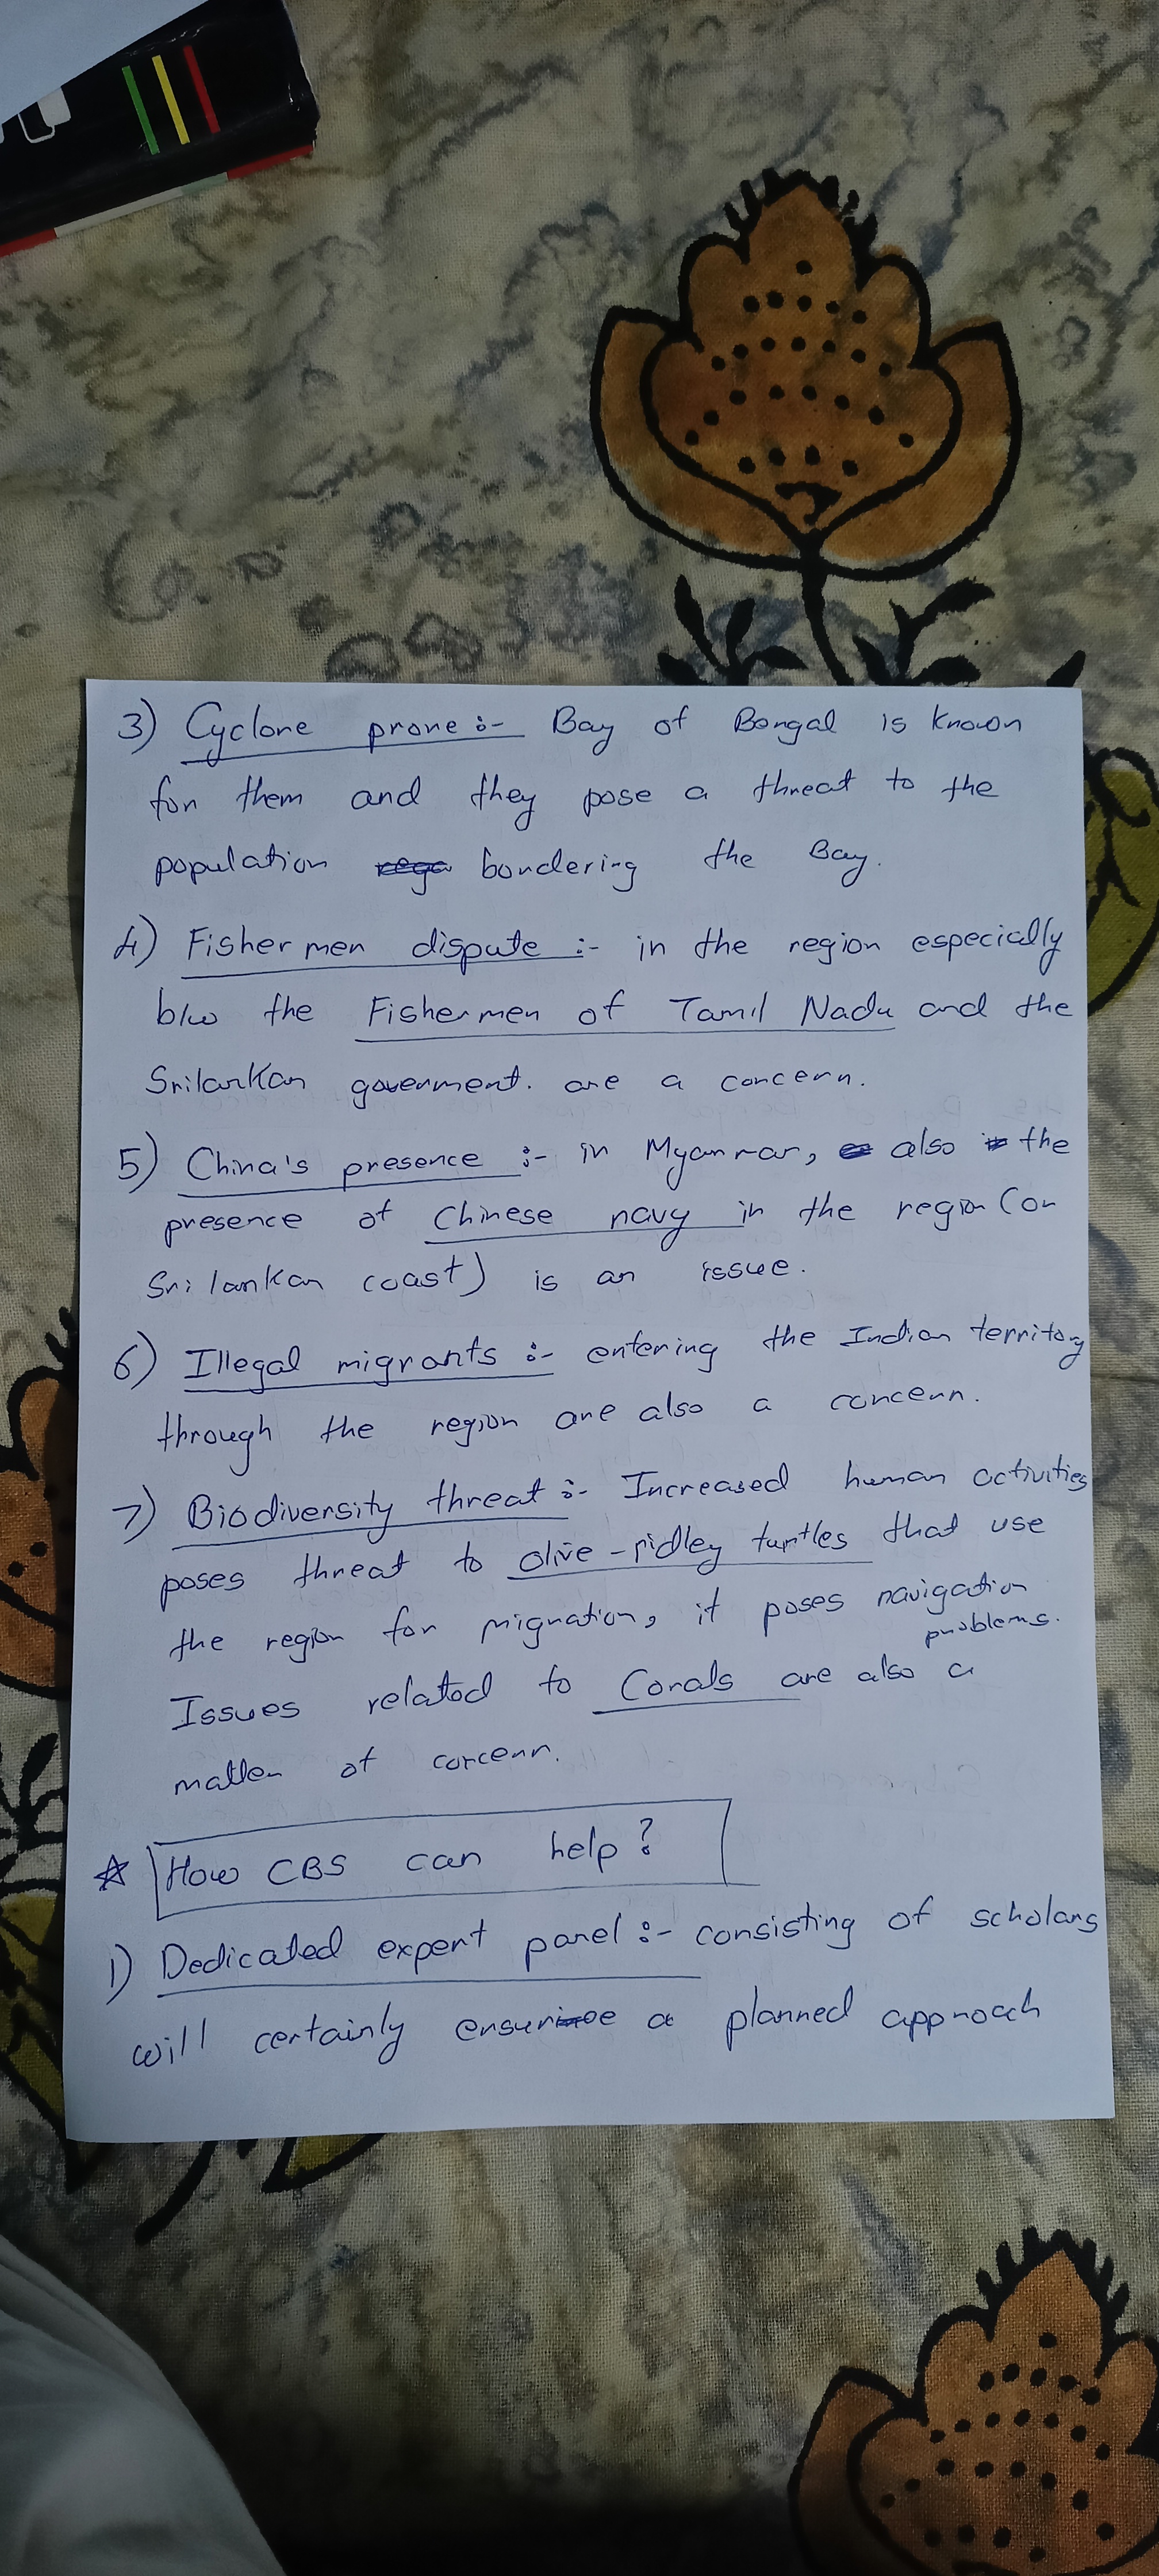 3) Cyclone prone :- Bay of Bengal is known
for them and they pose a threat to the
population rega bordering the Bay.
4) Fishermen dispute :- in the region especially
b/w the Fishermen of Tamil Nadu and the
Srilankan government. are a concern.
5) China's presence :- in Myanmar, also the
presence of Chinese navy in the region (on
Sri lankan coast) is an issue.
6) Illegal migrants :- entering the Indian territory
through the region are also a concern.
7) Biodiversity threat :- Increased human activities
poses threat to olive-ridley turtles that use
the region for migration, it poses navigation
problems.
Issues related to Corals are also a
matter of concern.
☆ How CBS can help?
1) Dedicated expert panel :- consisting of scholars
will certainly ensure a planned approach